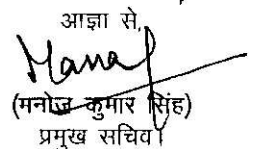 आज्ञा से,
Manoj
(मनोज कुमार सिंह)
प्रमुख सचिव।